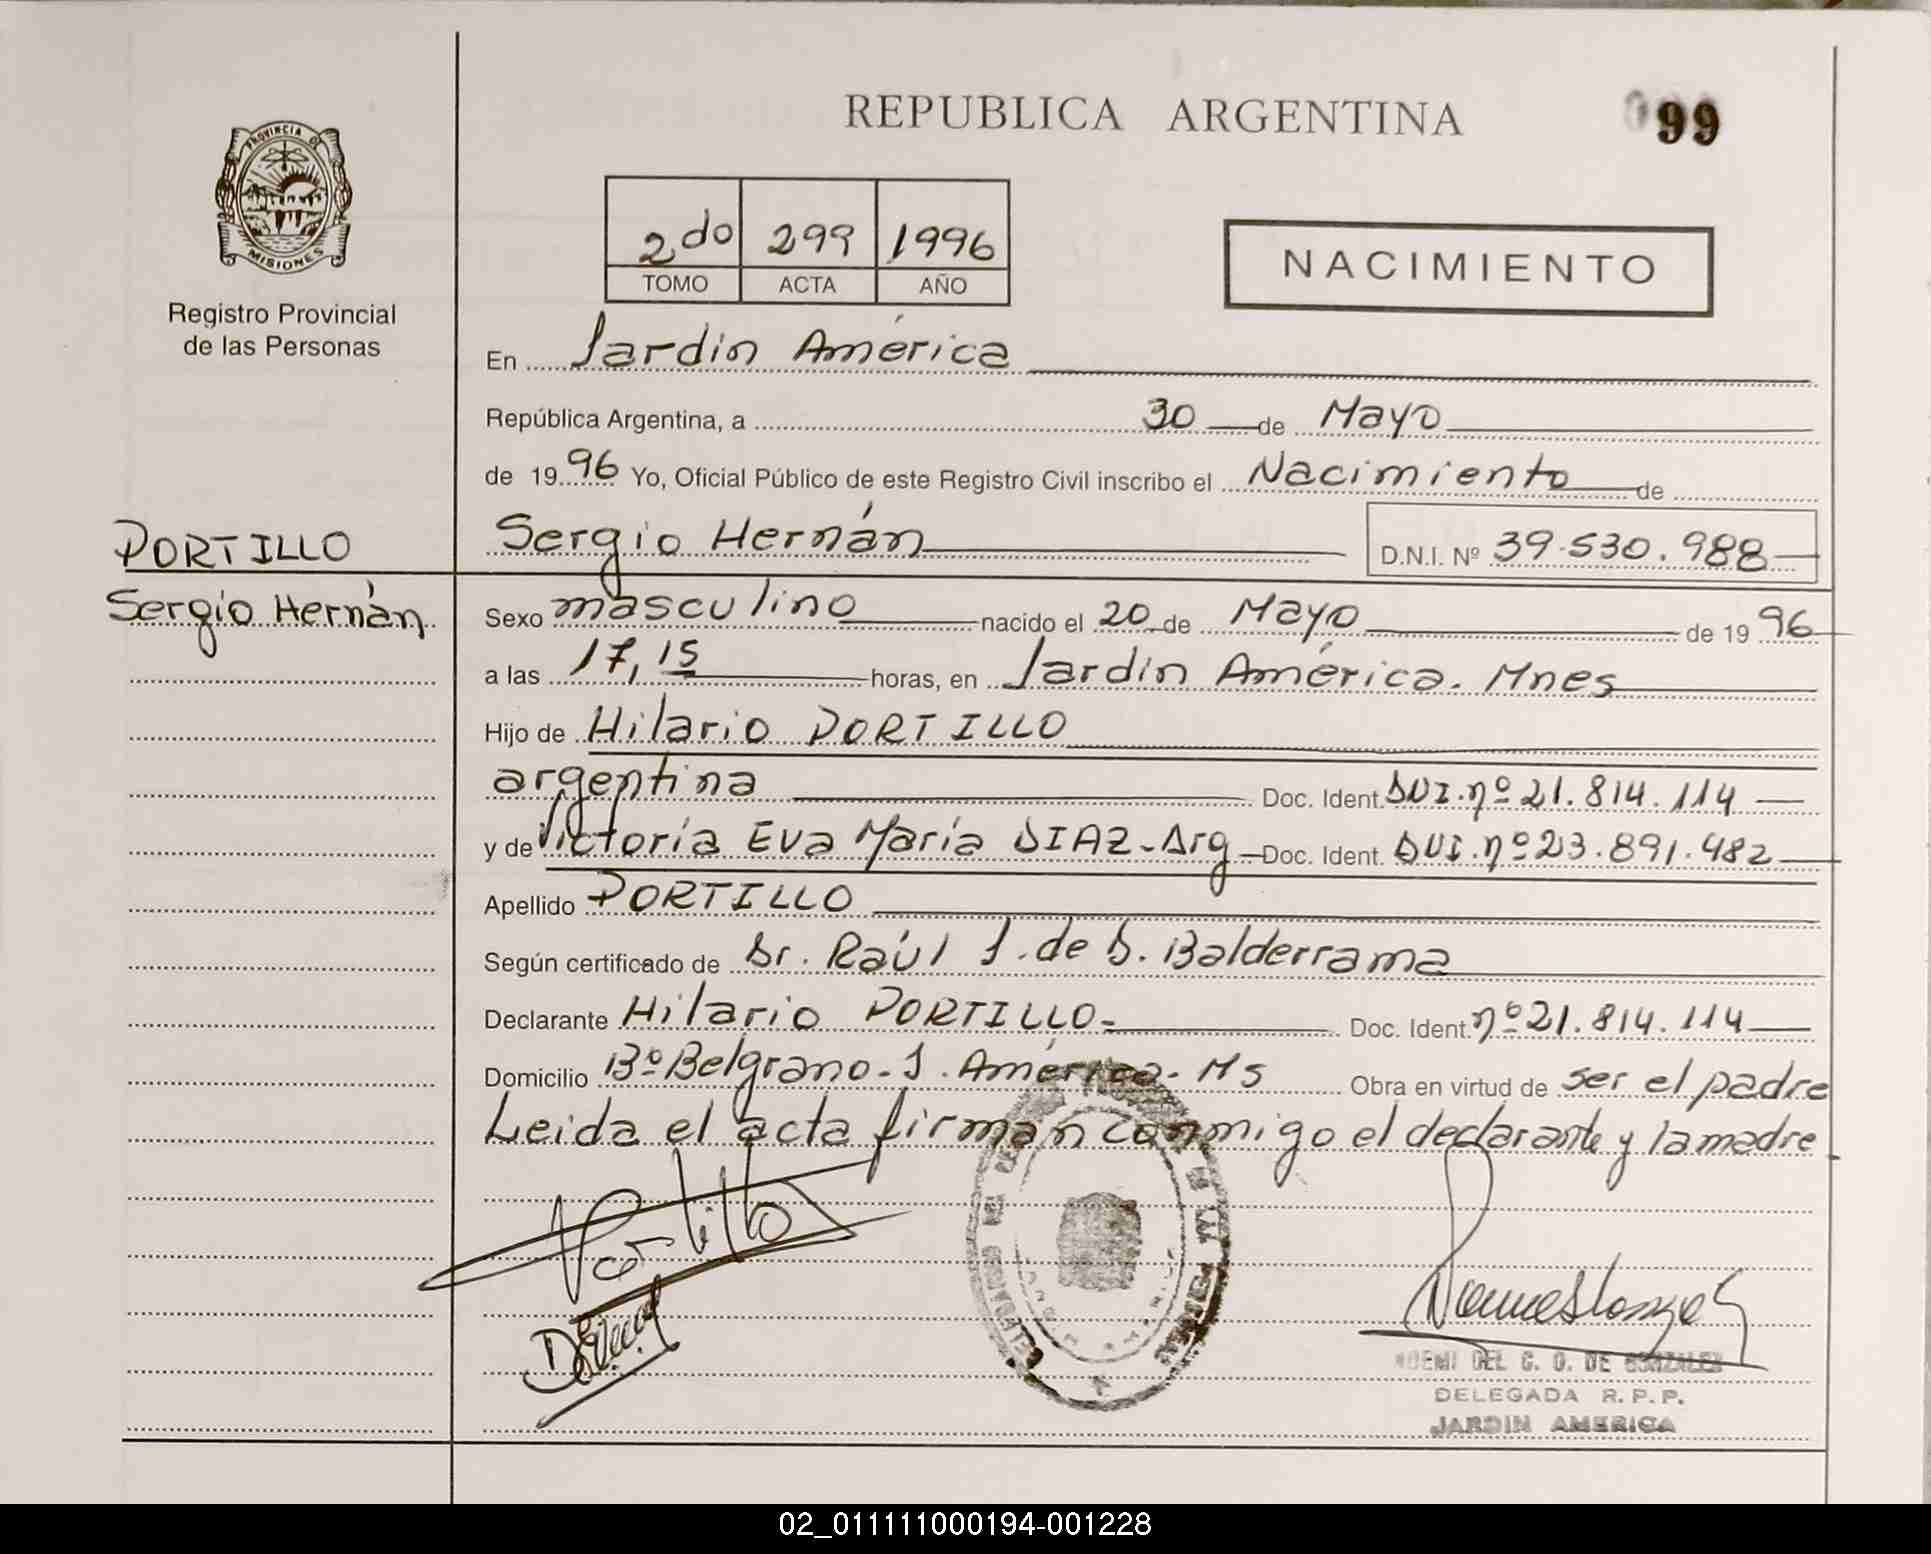 REPUBLICA ARGENTINA
099
PROVINCIA DE
MISIONES
Registro Provincial
de las Personas
2do 299 1996
TOMO ACTA AÑO
NACIMIENTO
En Jardin América
República Argentina, a 30 de Mayo
de 1996 Yo, Oficial Público de este Registro Civil inscribo el Nacimiento de
PORTILLO
Sergio Hernán
Sergio Hernán D.N.I. Nº 39.530.988
Sexo masculino nacido el 20 de Mayo de 1996
a las 17,15 horas, en Jardin América. Mnes
Hijo de Hilario PORTILLO
argentina Doc. Ident. DNI. nº 21.814.114
y de Victoria Eva Maria DIAZ - Arg Doc. Ident. DNI. nº 23.891.482
Apellido PORTILLO
Según certificado de Dr. Raúl J. de D. Balderrama
Declarante Hilario PORTILLO- Doc. Ident. nº 21.814.114
Domicilio Bº Belgrano - J. América - Ms Obra en virtud de ser el padre
Leida el acta firman conmigo el declarante y la madre.
Portillo
NOEMI DEL C. O. DE GONZALEZ
DELEGADA R.P.P.
JARDIN AMERICA
02_011111000194-001228